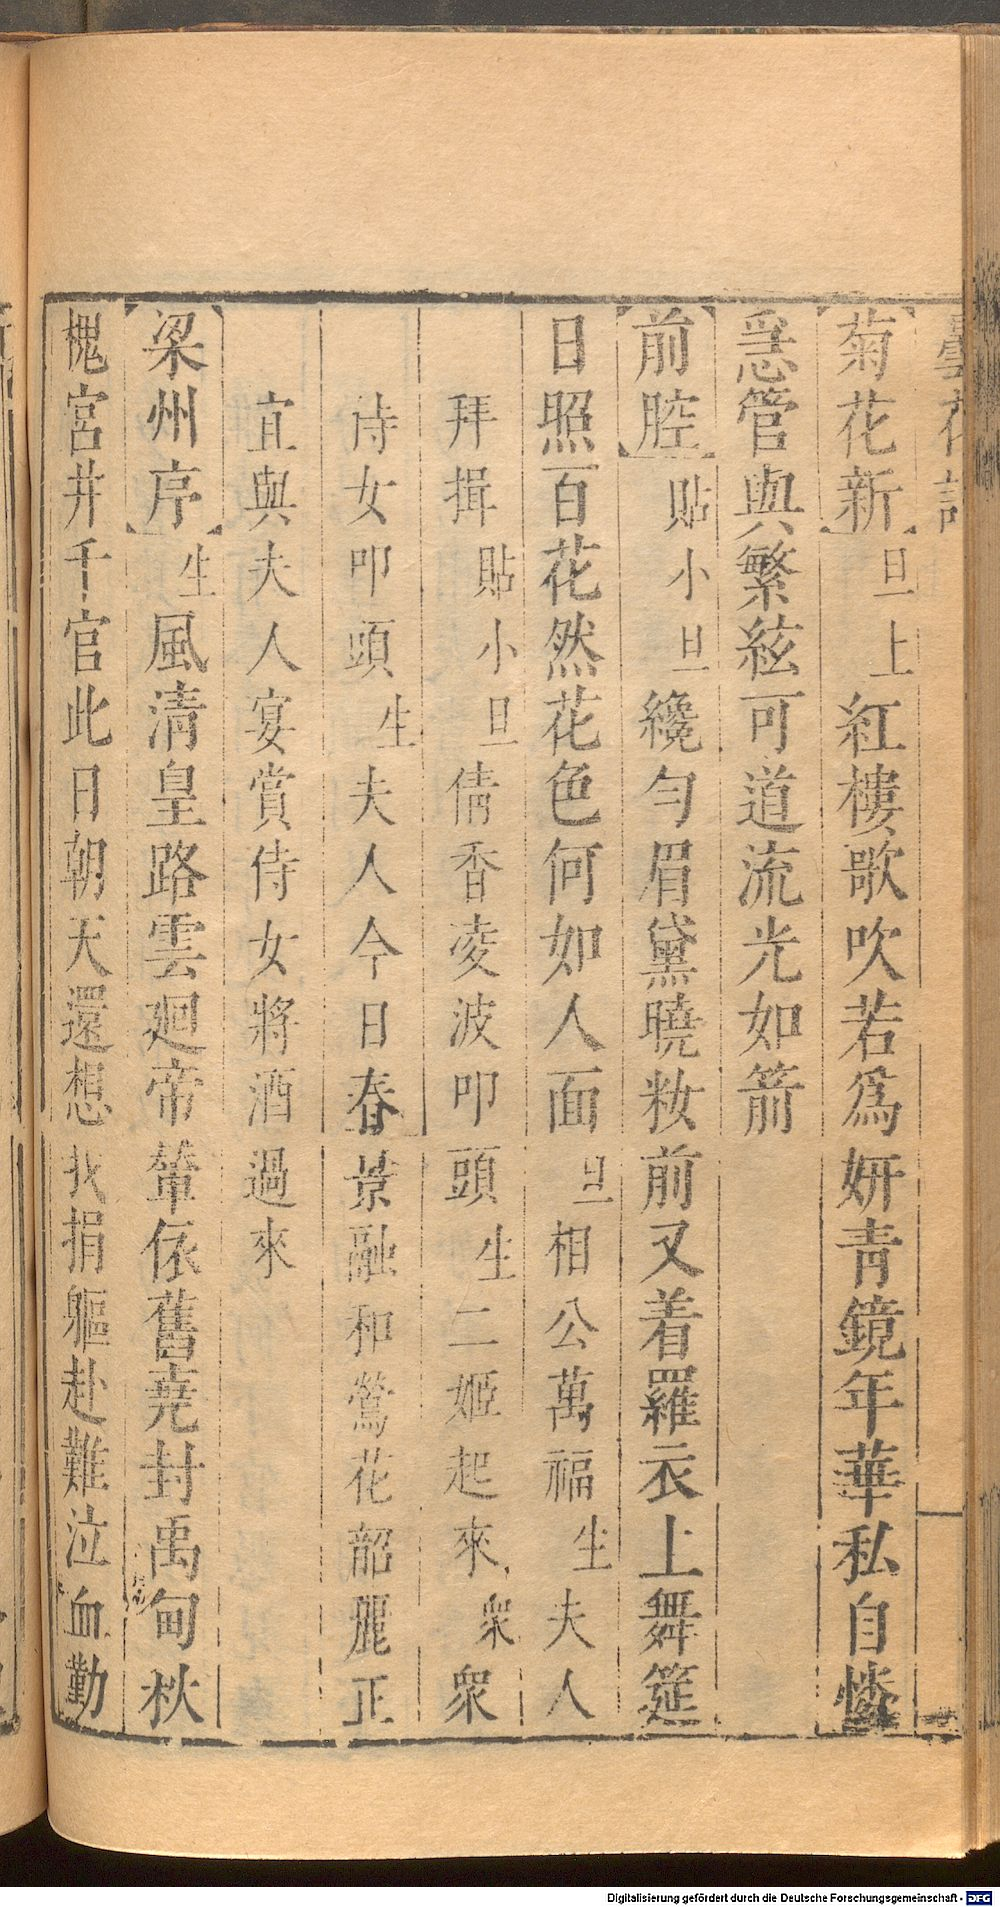 曇花記
【菊花新】旦上紅樓歌吹若爲妍青鏡年華私自憐
急管與繁絃可道流光如箭
【前腔】貼小旦纔勻眉黛曉妝前又着羅衣上舞筵
日照百花然花色何如人面旦相公萬福生夫人
拜揖貼小旦倩香凌波叩頭生二姬起來衆衆
侍女叩頭生夫人今日春景融和鶯花韶麗正
宜與夫人宴賞侍女將酒過來
【梁州序】生風清皇路雲廻帝輦依舊堯封禹甸秋
槐宮井千官此日朝天還想我捐軀赴難泣血勤
Digitalisierung gefördert durch die Deutsche Forschungsgemeinschaft - DFG